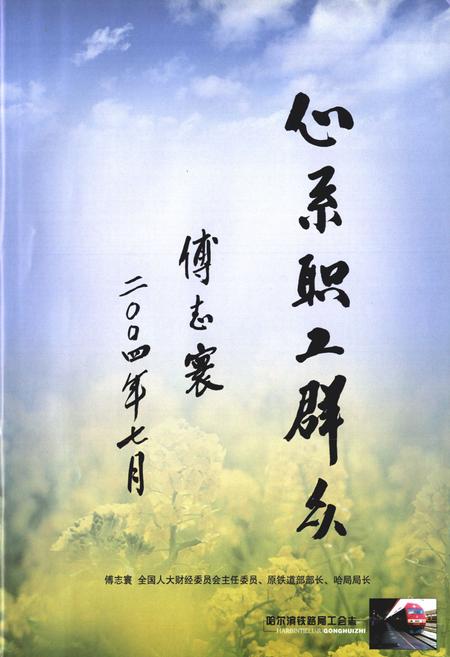 心系职工群众
傅志寰
二〇〇四年七月
傅志寰 全国人大财经委员会主任委员、原铁道部部长、哈局局长
哈尔滨铁路局工会志
HARBINTIELUJU GONGHUIZHI